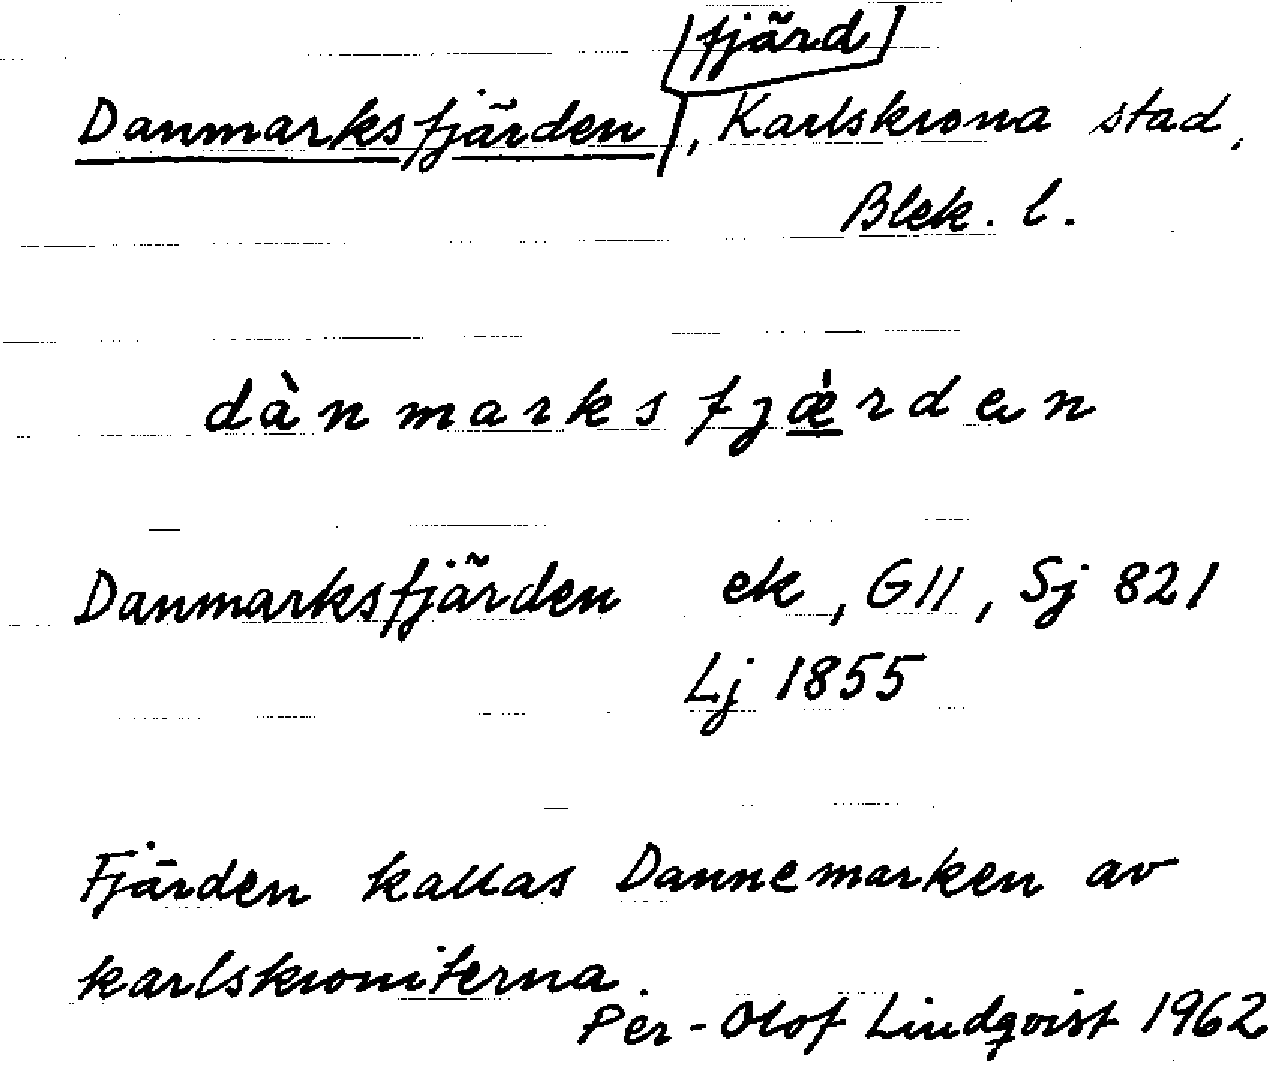 [fjärd]
Danmarksfjärden, Karlskrona stad,
Blek. l.
dànmarksfjǽrden
Danmarksfjärden ek, G11, Sj 821
Lj 1855
Fjärden kallas Dannemarken av
karlskroniterna.
Per-Olof Lindqvist 1962